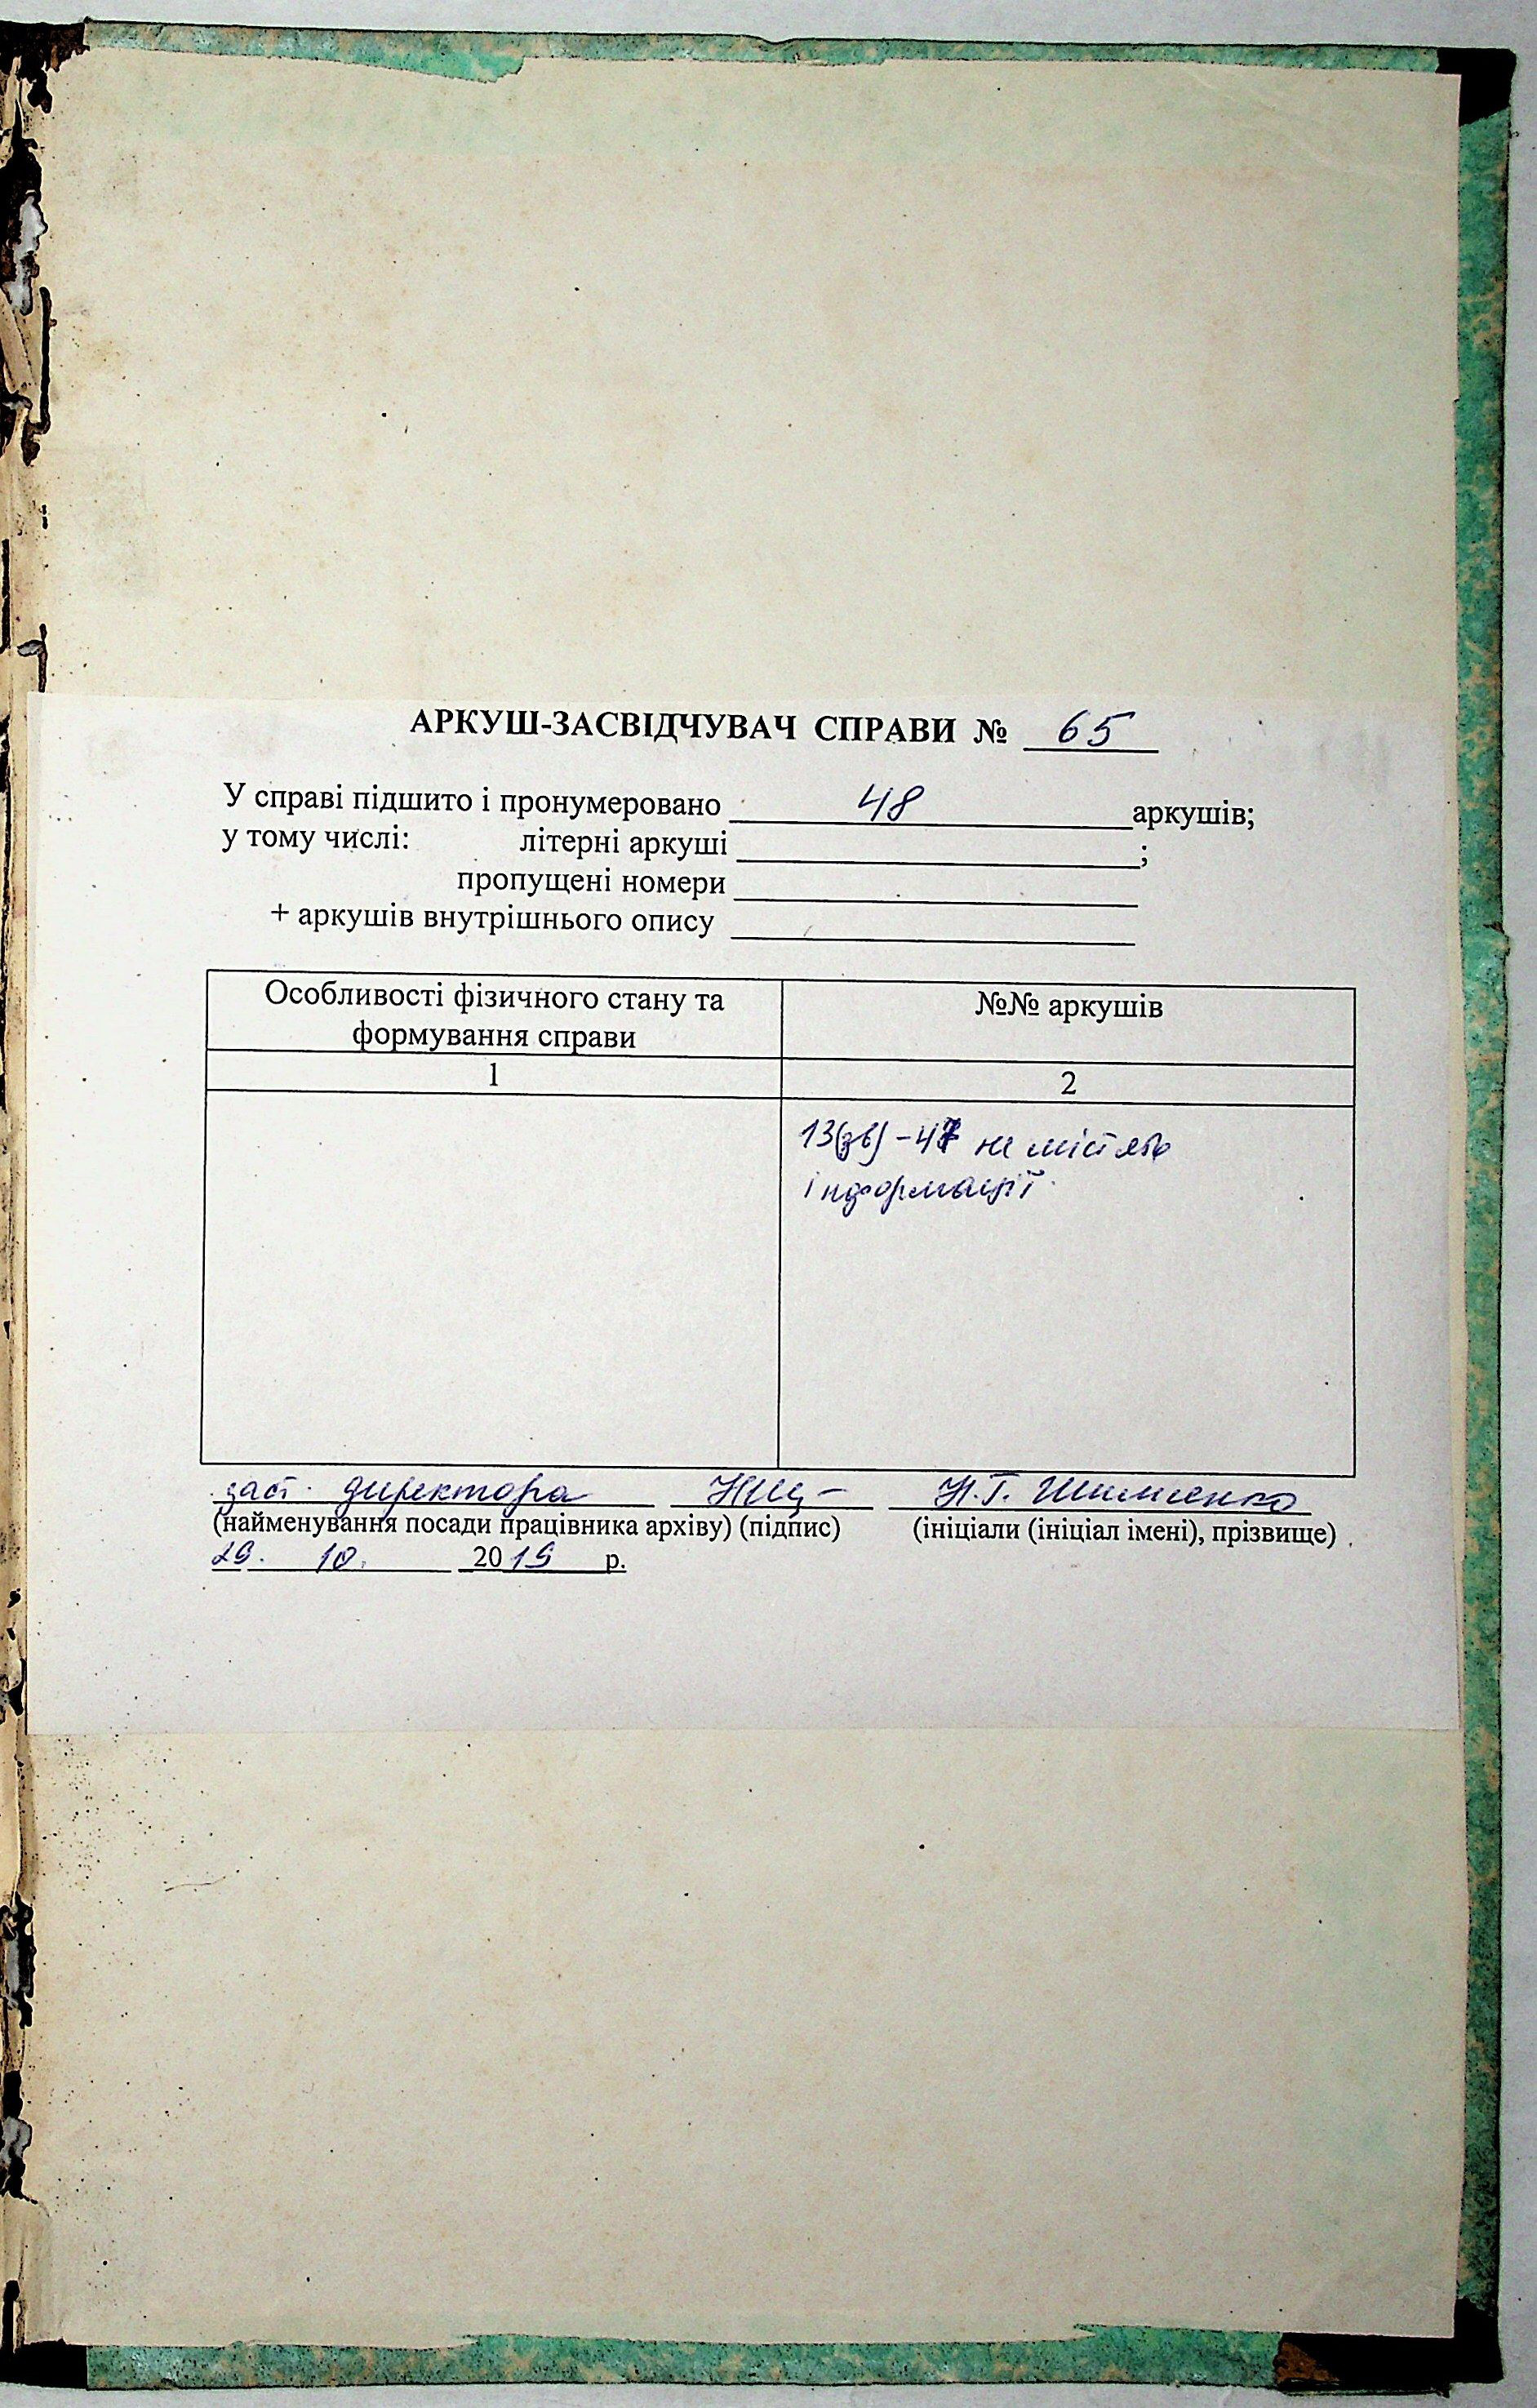 АРКУШ-ЗАСВІДЧУВАЧ СПРАВИ № 65
У справі підшито і пронумеровано 48 аркушів;
у тому числі: літерні аркуші ;
пропущені номери
+ аркушів внутрішнього опису
Особливості фізичного стану та
формування справи
№№ аркушів
1
2
13(зв) - 47 не містять
інформації
заст. директора Н.Г. Шишленко
(найменування посади працівника архіву) (підпис) (ініціали (ініціал імені), прізвище)
29. 10. 2019 р.